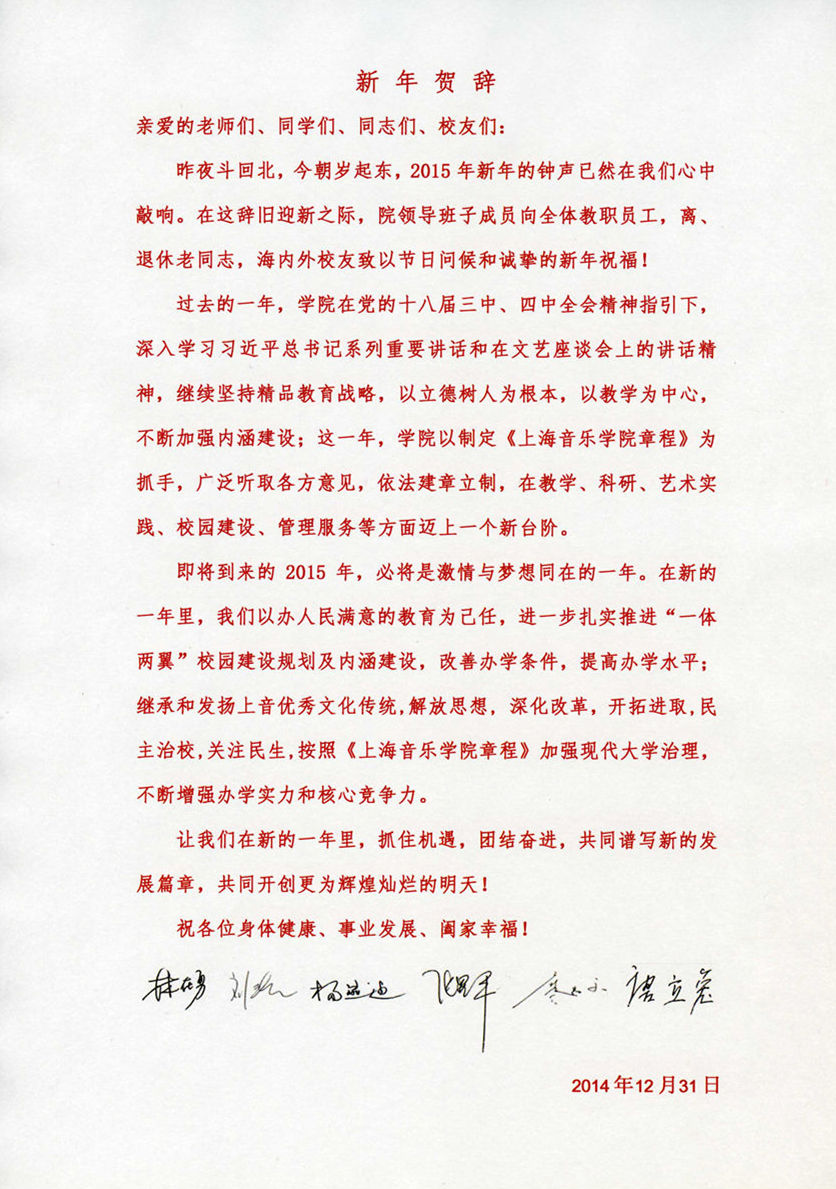 新 年 贺 辞
亲爱的老师们、同学们、同志们、校友们：
昨夜斗回北，今朝岁起东，2015 年新年的钟声已然在我们心中
敲响。在这辞旧迎新之际，院领导班子成员向全体教职员工，离、
退休老同志，海内外校友致以节日问候和诚挚的新年祝福！
过去的一年，学院在党的十八届三中、四中全会精神指引下，
深入学习习近平总书记系列重要讲话和在文艺座谈会上的讲话精
神，继续坚持精品教育战略，以立德树人为根本，以教学为中心，
不断加强内涵建设；这一年，学院以制定《上海音乐学院章程》为
抓手，广泛听取各方意见，依法建章立制，在教学、科研、艺术实
践、校园建设、管理服务等方面迈上一个新台阶。
即将到来的 2015 年，必将是激情与梦想同在的一年。在新的
一年里，我们以办人民满意的教育为己任，进一步扎实推进“一体
两翼”校园建设规划及内涵建设，改善办学条件，提高办学水平；
继承和发扬上音优秀文化传统,解放思想，深化改革，开拓进取,民
主治校,关注民生,按照《上海音乐学院章程》加强现代大学治理，
不断增强办学实力和核心竞争力。
让我们在新的一年里，抓住机遇，团结奋进，共同谱写新的发
展篇章，共同开创更为辉煌灿烂的明天！
祝各位身体健康、事业发展、阖家幸福！
2014 年 12 月 31 日